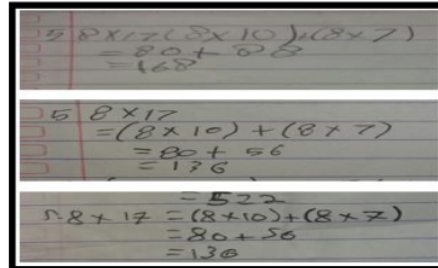 5 8×17(8×10)+(8×7)
=80+88
=168
5 8×17
=(8×10)+(8×7)
=80+56
=136
=522
5. 8×17 =(8×10)+(8×7)
=80+56
=136